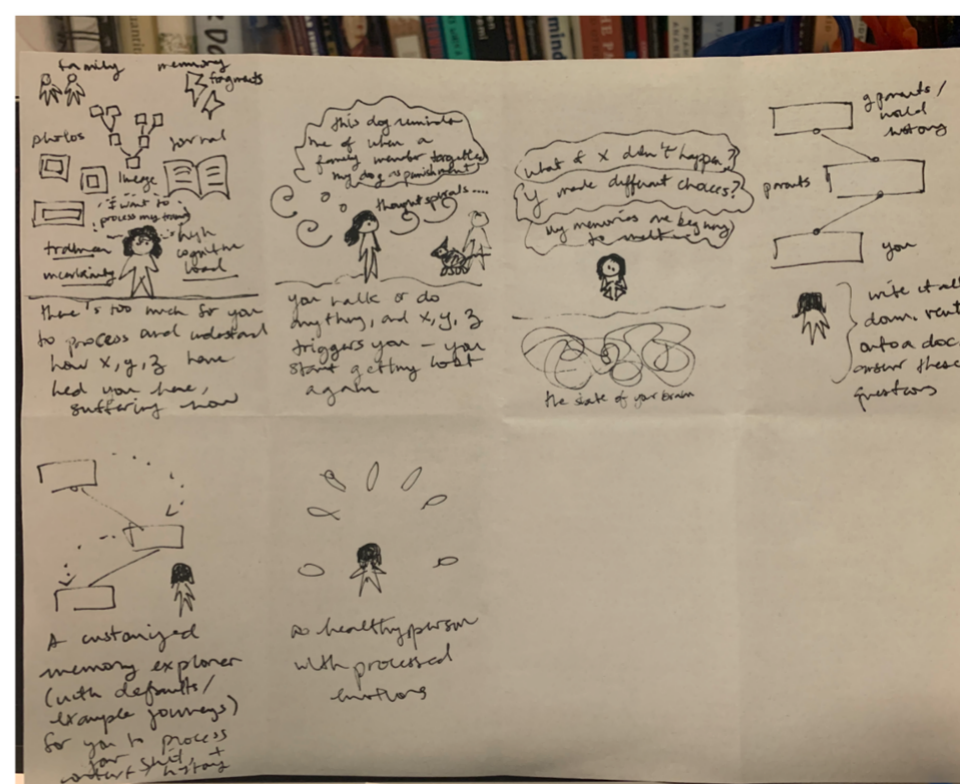 family
memory
fragments
photos
journal
lineage
"I want to
process my trauma"
trauma
uncertainty
high
cognitive
load
there's too much for you
to process and understand
how x, y, z have
led you here,
suffering now
this dog reminds
me of when a
family member
my dog as punishment
thought spirals....
you walk or do
anything, and x, y, z
triggers you – you
start getting lost
again
what if x didn't happen?
y made different choices?
my memories are
to melt
the state of your brain
gparents/
world
history
parents
you
write it all
down. vent
onto a doc.
answer these
questions
A customized
memory explorer
(with defaults/
example journeys)
for you to process
your shit, +
context, history
a healthy person
with processed
emotions